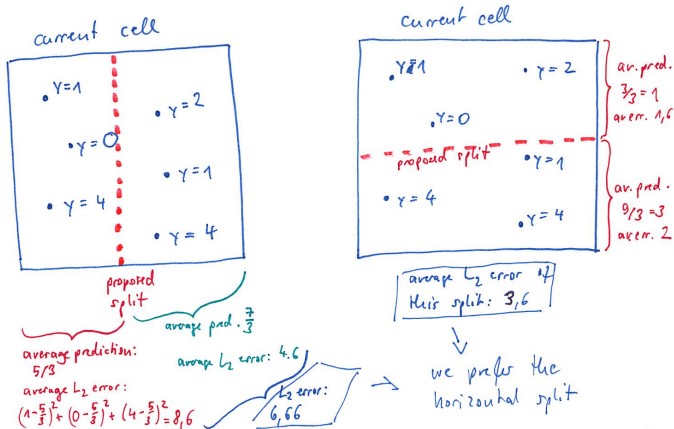 current cell
y=1
y=2
y=0
y=1
y=4
y=4
proposed
split
average pred. 7/3
average prediction:
5/3
average L2 error: 4.6
average L2 error:
(1-5/3)² + (0-5/3)² + (4-5/3)² = 8,6
L2 error:
6,66
current cell
y=1
y=2
y=0
proposed split
y=1
y=4
y=4
av. pred.
3/3=1
av err. 1,6
av. pred.
9/3=3
av err. 2
average L2 error of
this split: 3,6
we prefer the
horizontal split